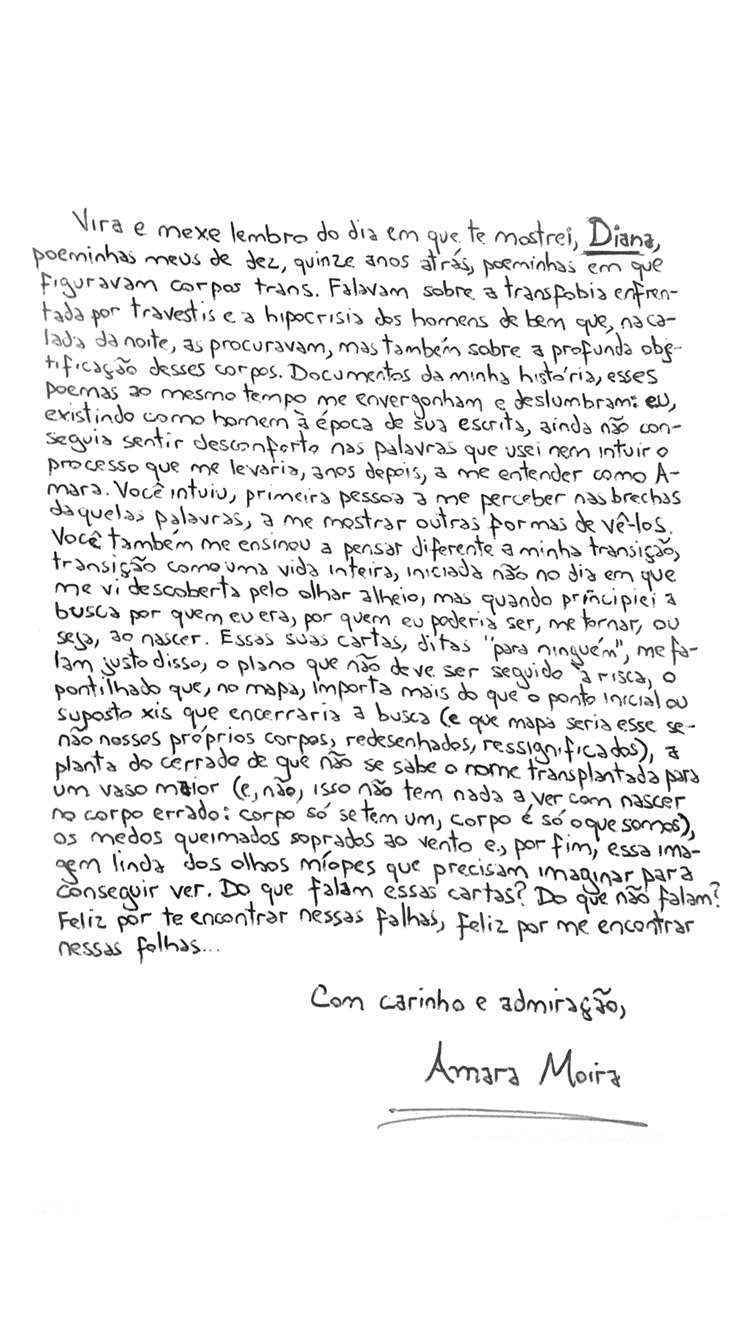 Vira e mexe lembro do dia em que te mostrei, Diana,
poeminhas meus de dez, quinze anos atrás, poeminhas em que
figuravam corpos trans. Falavam sobre a transfobia enfren-
tada por travestis e a hipocrisia dos homens de bem que, na ca-
lada da noite, as procuravam, mas também sobre a profunda obje-
tificação desses corpos. Documentos da minha história, esses
poemas ao mesmo tempo me envergonham e deslumbram: eu,
existindo como homem à época de sua escrita, ainda não con-
seguia sentir desconforto nas palavras que usei nem intuir o
processo que me levaria, anos depois, a me entender como A-
mara. Você intuiu, primeira pessoa a me perceber nas brechas
daquelas palavras, a me mostrar outras formas de vê-los.
Você também me ensinou a pensar diferente a minha transição,
transição como uma vida inteira, iniciada não no dia em que
me vi descoberta pelo olhar alheio, mas quando principiei a
busca por quem eu era, por quem eu poderia ser, me tornar, ou
seja, ao nascer. Essas suas cartas, ditas "para ninguém", me fa-
lam justo disso, o plano que não deve ser seguido à risca, o
pontilhado que, no mapa, importa mais do que o ponto inicial ou
suposto xis que encerraria a busca (e que mapa seria esse se-
não nossos próprios corpos, redesenhados, ressignificados), a
planta do cerrado de que não se sabe o nome transplantada para
um vaso maior (e, não, isso não tem nada a ver com nascer
no corpo errado: corpo só se tem um, corpo é só o que somos),
os medos queimados soprados ao vento e, por fim, essa ima-
gem linda dos olhos míopes que precisam imaginar para
conseguir ver. Do que falam essas cartas? Do que não falam?
Feliz por te encontrar nessas falhas, feliz por me encontrar
nessas folhas...
Com carinho e admiração,
Amara Moira